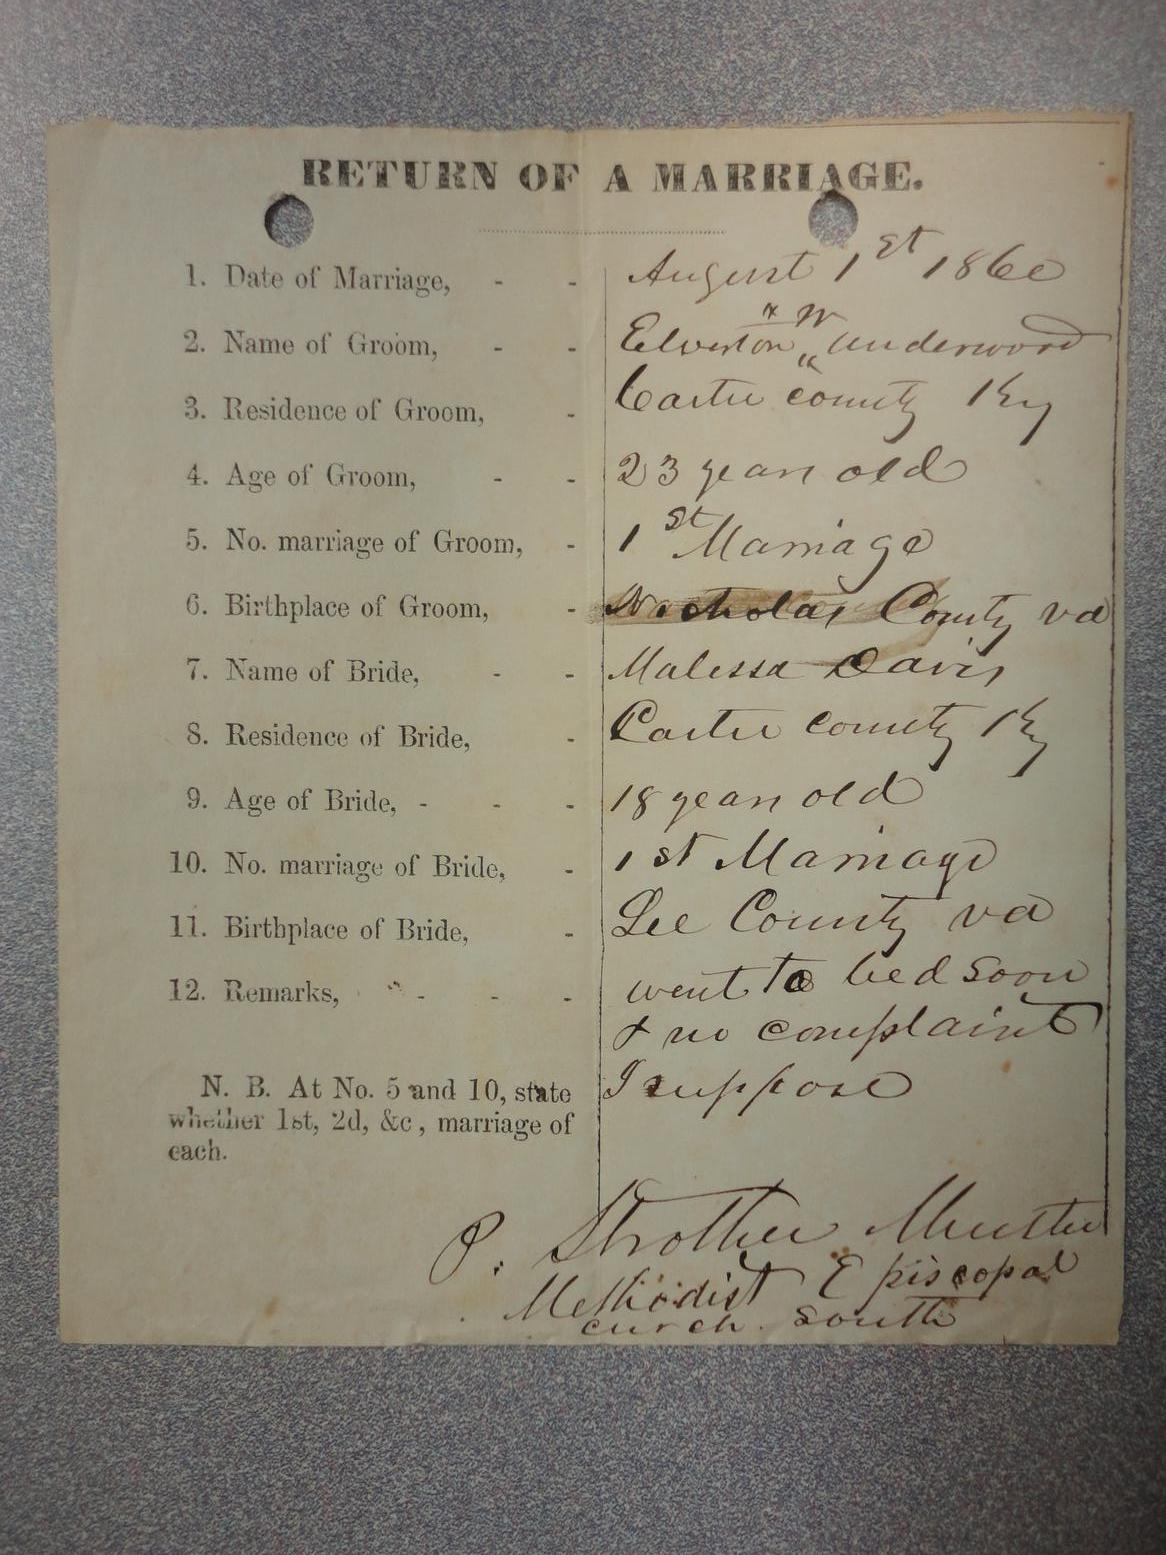 RETURN OF A MARRIAGE.
1. Date of Marriage, - - August 1st 1860
2. Name of Groom, - - Elverton W Underwood
3. Residence of Groom, - Carter county Ky
4. Age of Groom, - - 23 years old
5. No. marriage of Groom, - 1st Marriage
6. Birthplace of Groom, - Nicholas County va
7. Name of Bride, - - Malissa Davis
8. Residence of Bride, - Carter county Ky
9. Age of Bride, - - - 18 years old
10. No. marriage of Bride, - 1st Marriage
11. Birthplace of Bride, - Lee County va
12. Remarks, - - - went to bed soon
& no complaint
I suppose
N. B. At No. 5 and 10, state
whether 1st, 2d, &c, marriage of
each.
P. Strother
Methodist Episcopal
curch. south